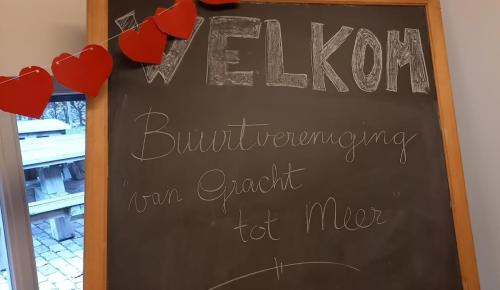 WELKOM
Buurtvereniging
"van Gracht
tot Meer"